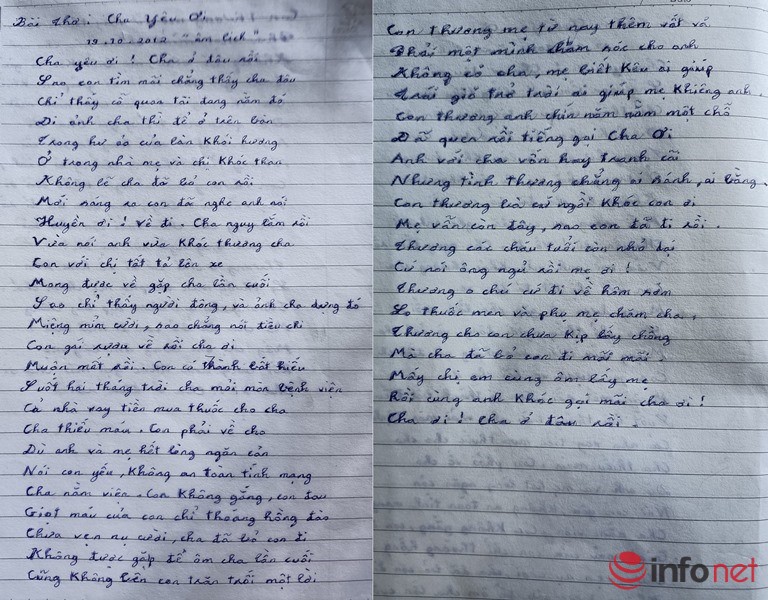 Bài thơ: Cha Yêu Ơi
19.10.2012 "âm lịch"
Cha yêu ơi! Cha ở đâu rồi
Sao con tìm mãi chẳng thấy cha đâu
Chỉ thấy cỗ quan tài đang nằm đó
Di ảnh cha thì để ở trên bàn
Trong hư ảo của làn khói hương
Ở trong nhà mẹ và chị khóc than
Không lẽ cha đã bỏ con rồi
Mới sáng ra con đã nghe anh nói
Huyền ơi! Về đi. Cha nguy lắm rồi
Vừa nói anh vừa khóc thương cha
Con với chị tất tả lên xe
Mong được về gặp cha lần cuối
Sao chỉ thấy người đông, và ảnh cha dựng đó
Miệng mỉm cười, sao chẳng nói điều chi
Con gái rượu về rồi cha ơi
Muộn mất rồi. Con có thành bất hiếu
Suốt hai tháng trời cha mỏi mòn bệnh viện
Cả nhà vay tiền mua thuốc cho cha
Cha thiếu máu. Con phải về cho
Dù anh và mẹ hết lòng ngăn cản
Nói con yếu, không an toàn tính mạng
Cha nằm viện. Con không gắng, con đau
Giọt máu của con chỉ thoáng hồng đào
Chưa vẹn nụ cười, cha đã bỏ con đi
Không được gặp để ôm cha lần cuối
Cũng không bên con trăn trối một lời
Con thương mẹ từ nay thêm vất vả
Phải một mình chăm sóc cho anh
Không có cha, mẹ biết kêu ai giúp
Trái gió trở trời ai giúp mẹ khiêng anh.
Con thương anh chín năm nằm một chỗ
Đã quen rồi tiếng gọi Cha Ơi
Anh với cha vẫn hay tranh cãi
Nhưng tình thương chẳng ai sánh, ai bằng.
Con thương bà cứ ngồi khóc con ơi
Mẹ vẫn còn đây, sao con đã đi rồi.
Thương các cháu tuổi còn nhỏ dại
Cứ nói ông ngủ rồi mẹ ơi!
Thương o chú cứ đi về hôm sớm
Lo thuốc men và phụ mẹ chăm cha.
Thương cho con chưa kịp lấy chồng
Mà cha đã bỏ con đi mất mãi.
Mấy chị em cùng ôm lấy mẹ
Rồi cùng anh khóc gọi mãi cha ơi!
Cha ơi! Cha ở đâu rồi.
infonet